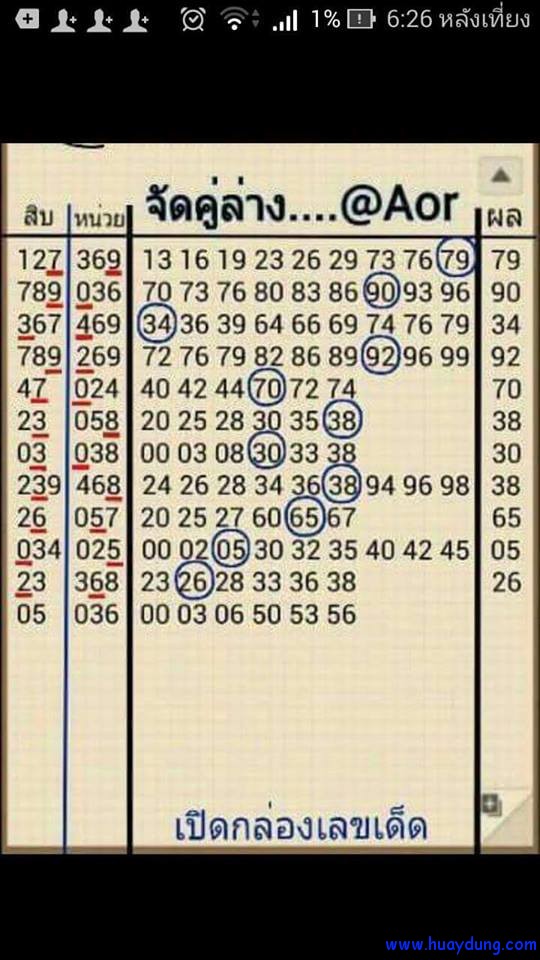 1% 6:26 หลังเที่ยง
จัดคู่ล่าง....@Aor
สิบ หน่วย ผล
127 369 13 16 19 23 26 29 73 76 79 79
789 036 70 73 76 80 83 86 90 93 96 90
367 469 34 36 39 64 66 69 74 76 79 34
789 269 72 76 79 82 86 89 92 96 99 92
47 024 40 42 44 70 72 74 70
23 058 20 25 28 30 35 38 38
03 038 00 03 08 30 33 38 30
239 468 24 26 28 34 36 38 94 96 98 38
26 057 20 25 27 60 65 67 65
034 025 00 02 05 30 32 35 40 42 45 05
23 368 23 26 28 33 36 38 26
05 036 00 03 06 50 53 56
เปิดกล่องเลขเด็ด
www.huaydung.com